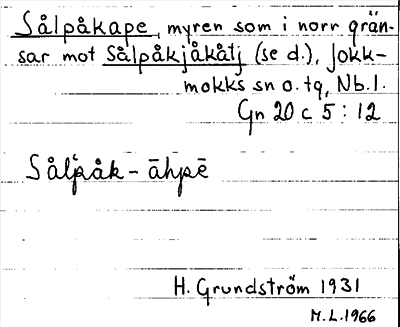 Sålpåkape, myren som i norr grän-
sar mot Sålpåkjåkåtj (se d.), Jokk-
mokks sn o. tg, Nb.l.
Gn 20 c 5 : 12
Sålpåk - āhpē
H. Grundström 1931
M.L. 1966